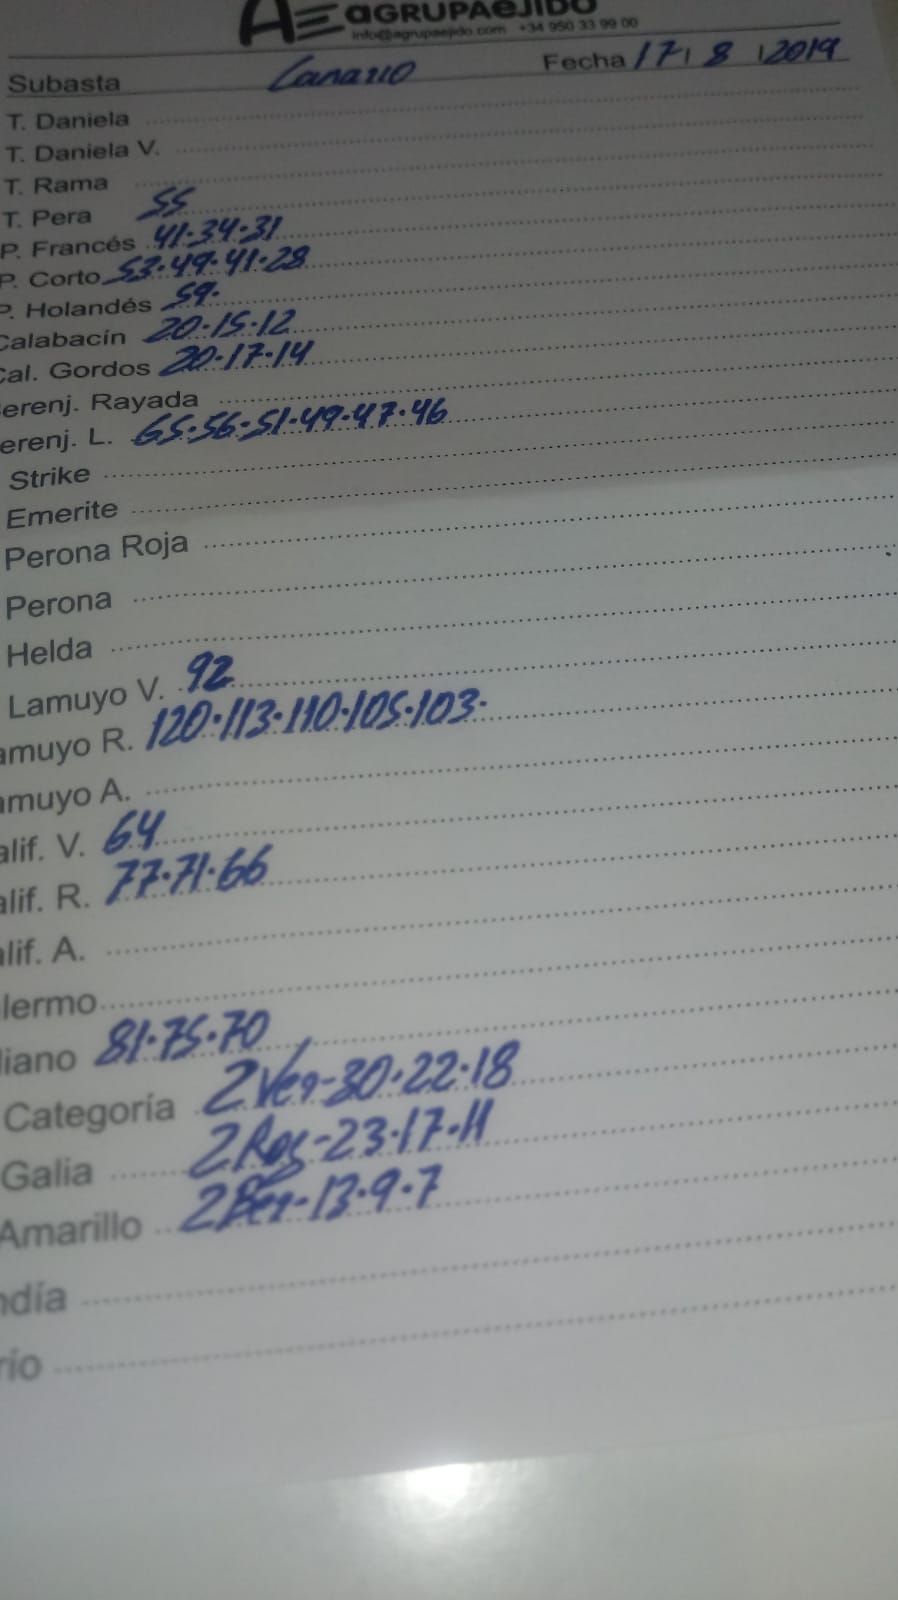 AE AGRUPAEJIDO
info@agrupaejido.com +34 950 33 99 00
Subasta Canario Fecha 17 / 8 / 2019
T. Daniela
T. Daniela V.
T. Rama
T. Pera 55
P. Francés 41·34·31
P. Corto 53·49·41·28
P. Holandés 59·
Calabacín 20·15·12
Cal. Gordos 20·17·14
erenj. Rayada
erenj. L. 65·56·51·49·47·46
Strike
Emerite
Perona Roja
Perona
Helda
Lamuyo V. 92
amuyo R. 120·113·110·105·103·
amuyo A.
alif. V. 64
alif. R. 77·71·66
alif. A.
lermo
liano 81·75·70
Categoría 2Ver-30·22·18
Galia 2Roj-23·17·11
Amarillo 2Ber-13·9·7
ndía
río